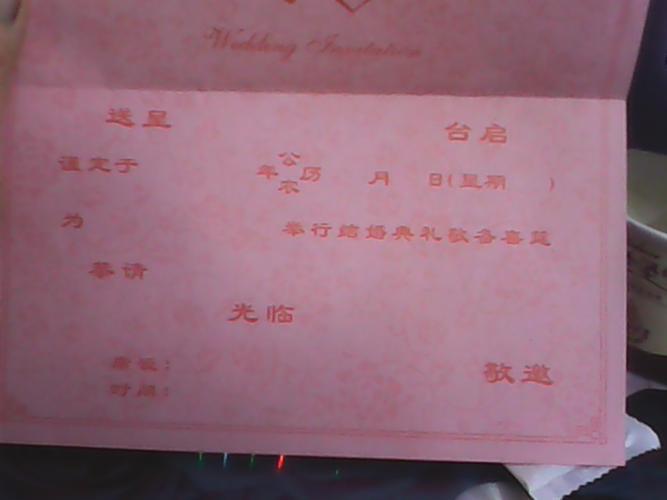 Wedding Invitation
送呈 台启
谨定于 年 公 农 历 月 日(星期 )
为 举行结婚典礼敬备喜筵
恭请
光临
席设: 敬邀
时间: